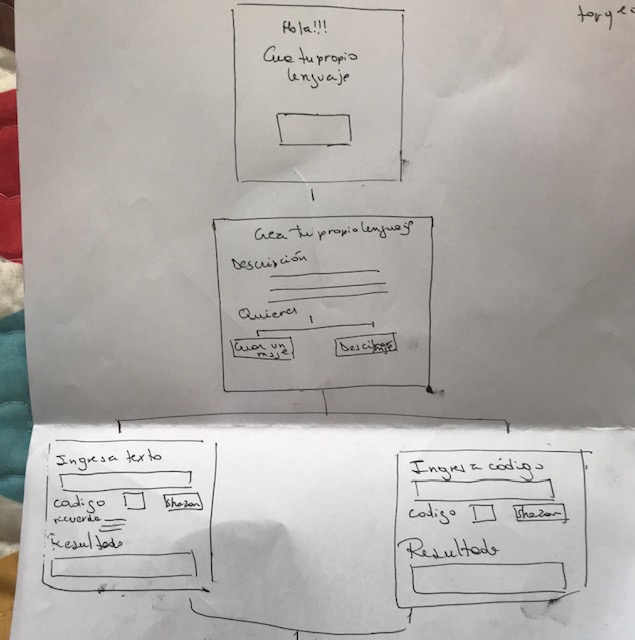 Hola!!!
Crea tu propio
lenguaje
Crea tu propio lenguaje
Descripción
Quieres
Crear un
msje
Descifrar
msje
Ingresa texto
codigo
recuerda
Resultado
Ingresa código
codigo
Resultado